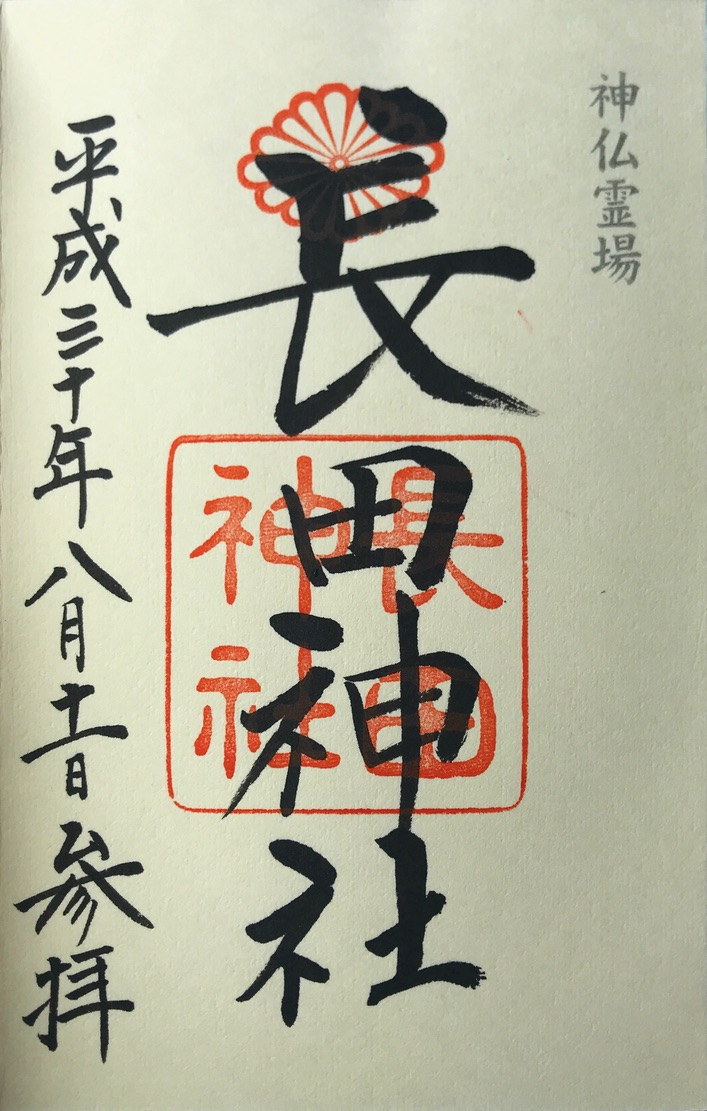 神仏霊場
長田神社
長田
神社
平成三十年八月十一日参拝